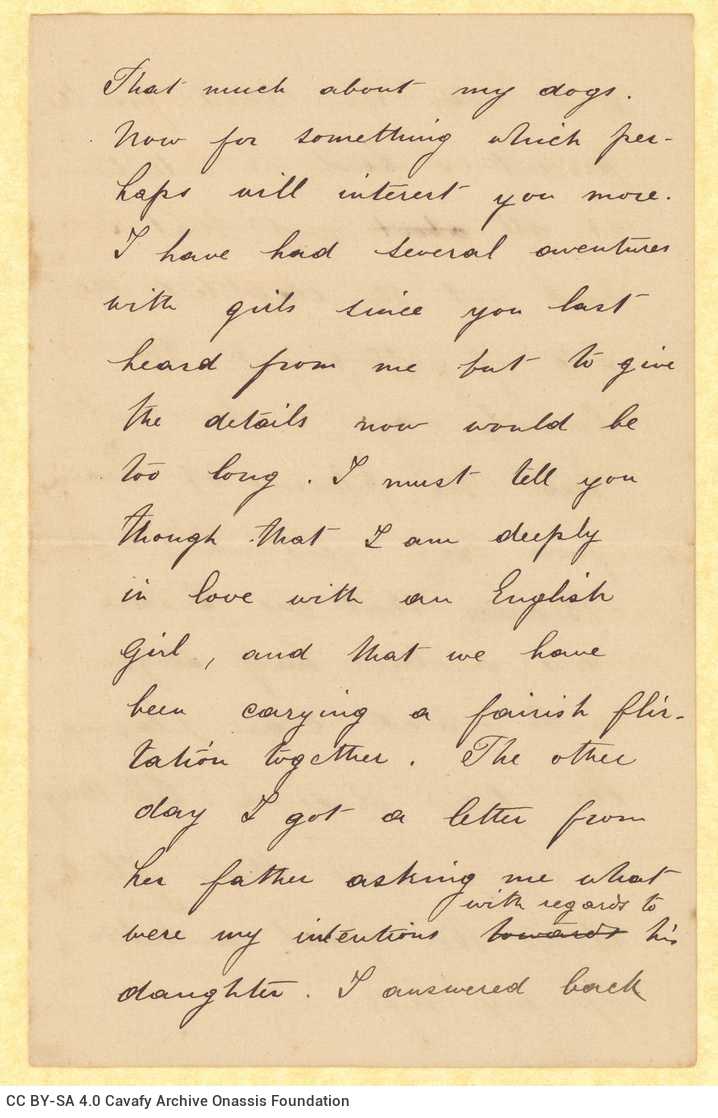 That much about my dogs.
Now for something which per-
haps will interest you more.
I have had several aventures
with girls since you last
heard from me but to give
the details now would be
too long. I must tell you
though that I am deeply
in love with an English
Girl, and that we have
been carying a fairish flir-
tation together. The other
day I got a letter from
her father asking me what
with regards to
were my intentions towards his
daughter. I answered back
CC BY-SA 4.0 Cavafy Archive Onassis Foundation